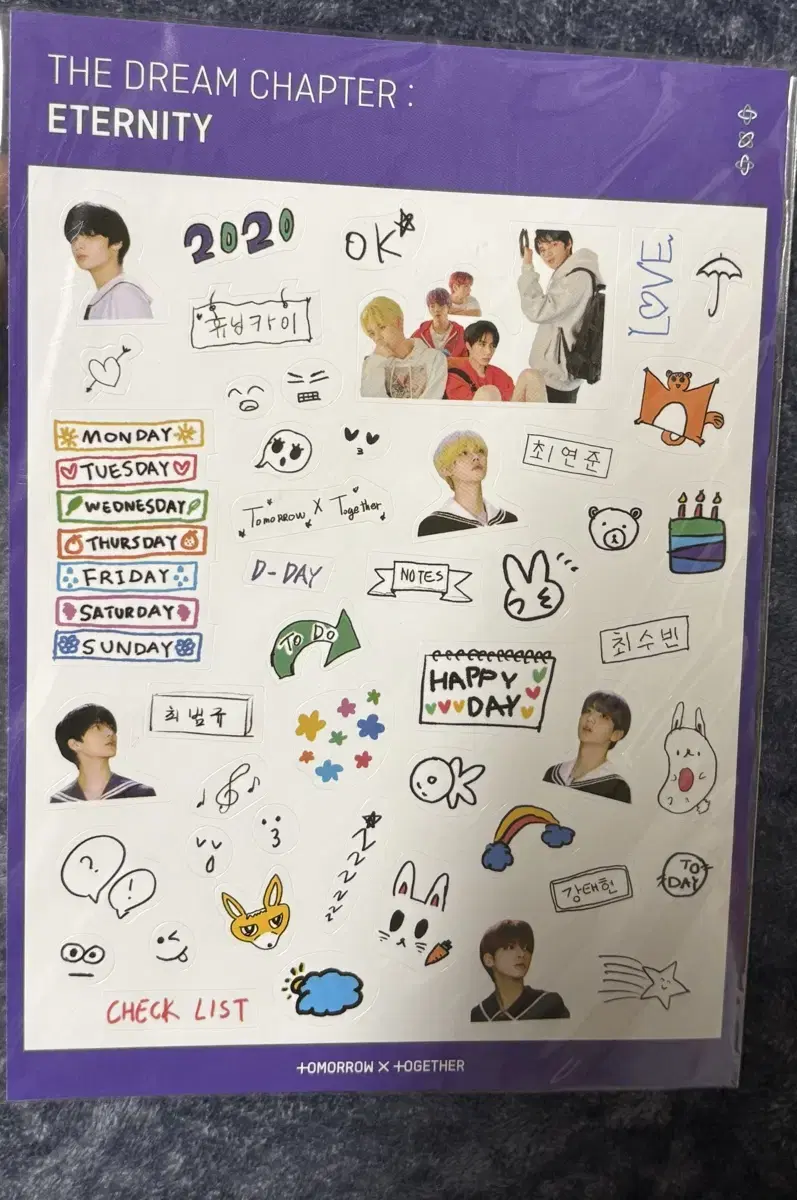 THE DREAM CHAPTER :
ETERNITY
2020
OK
LOVE
휴닝카이
MONDAY
TUESDAY
WEDNESDAY
THURSDAY
FRIDAY
SATURDAY
SUNDAY
최연준
Tomorrow X Together
D-DAY
NOTES
TO DO
최수빈
HAPPY
DAY
최범규
?
!
zzzzzzz
강태현
TO
DAY
CHECK LIST
TOMORROW X TOGETHER